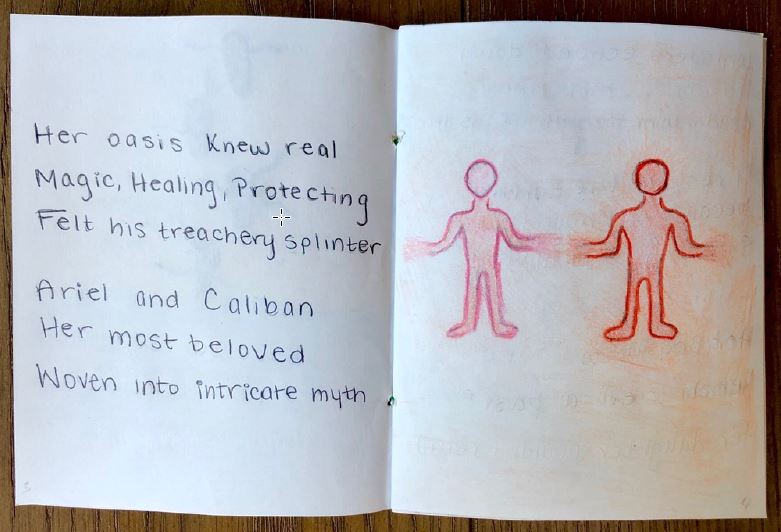 Her oasis knew real
Magic, Healing, Protecting
Felt his treachery splinter
Ariel and Caliban
Her most beloved
Woven into intricate myth
3
4